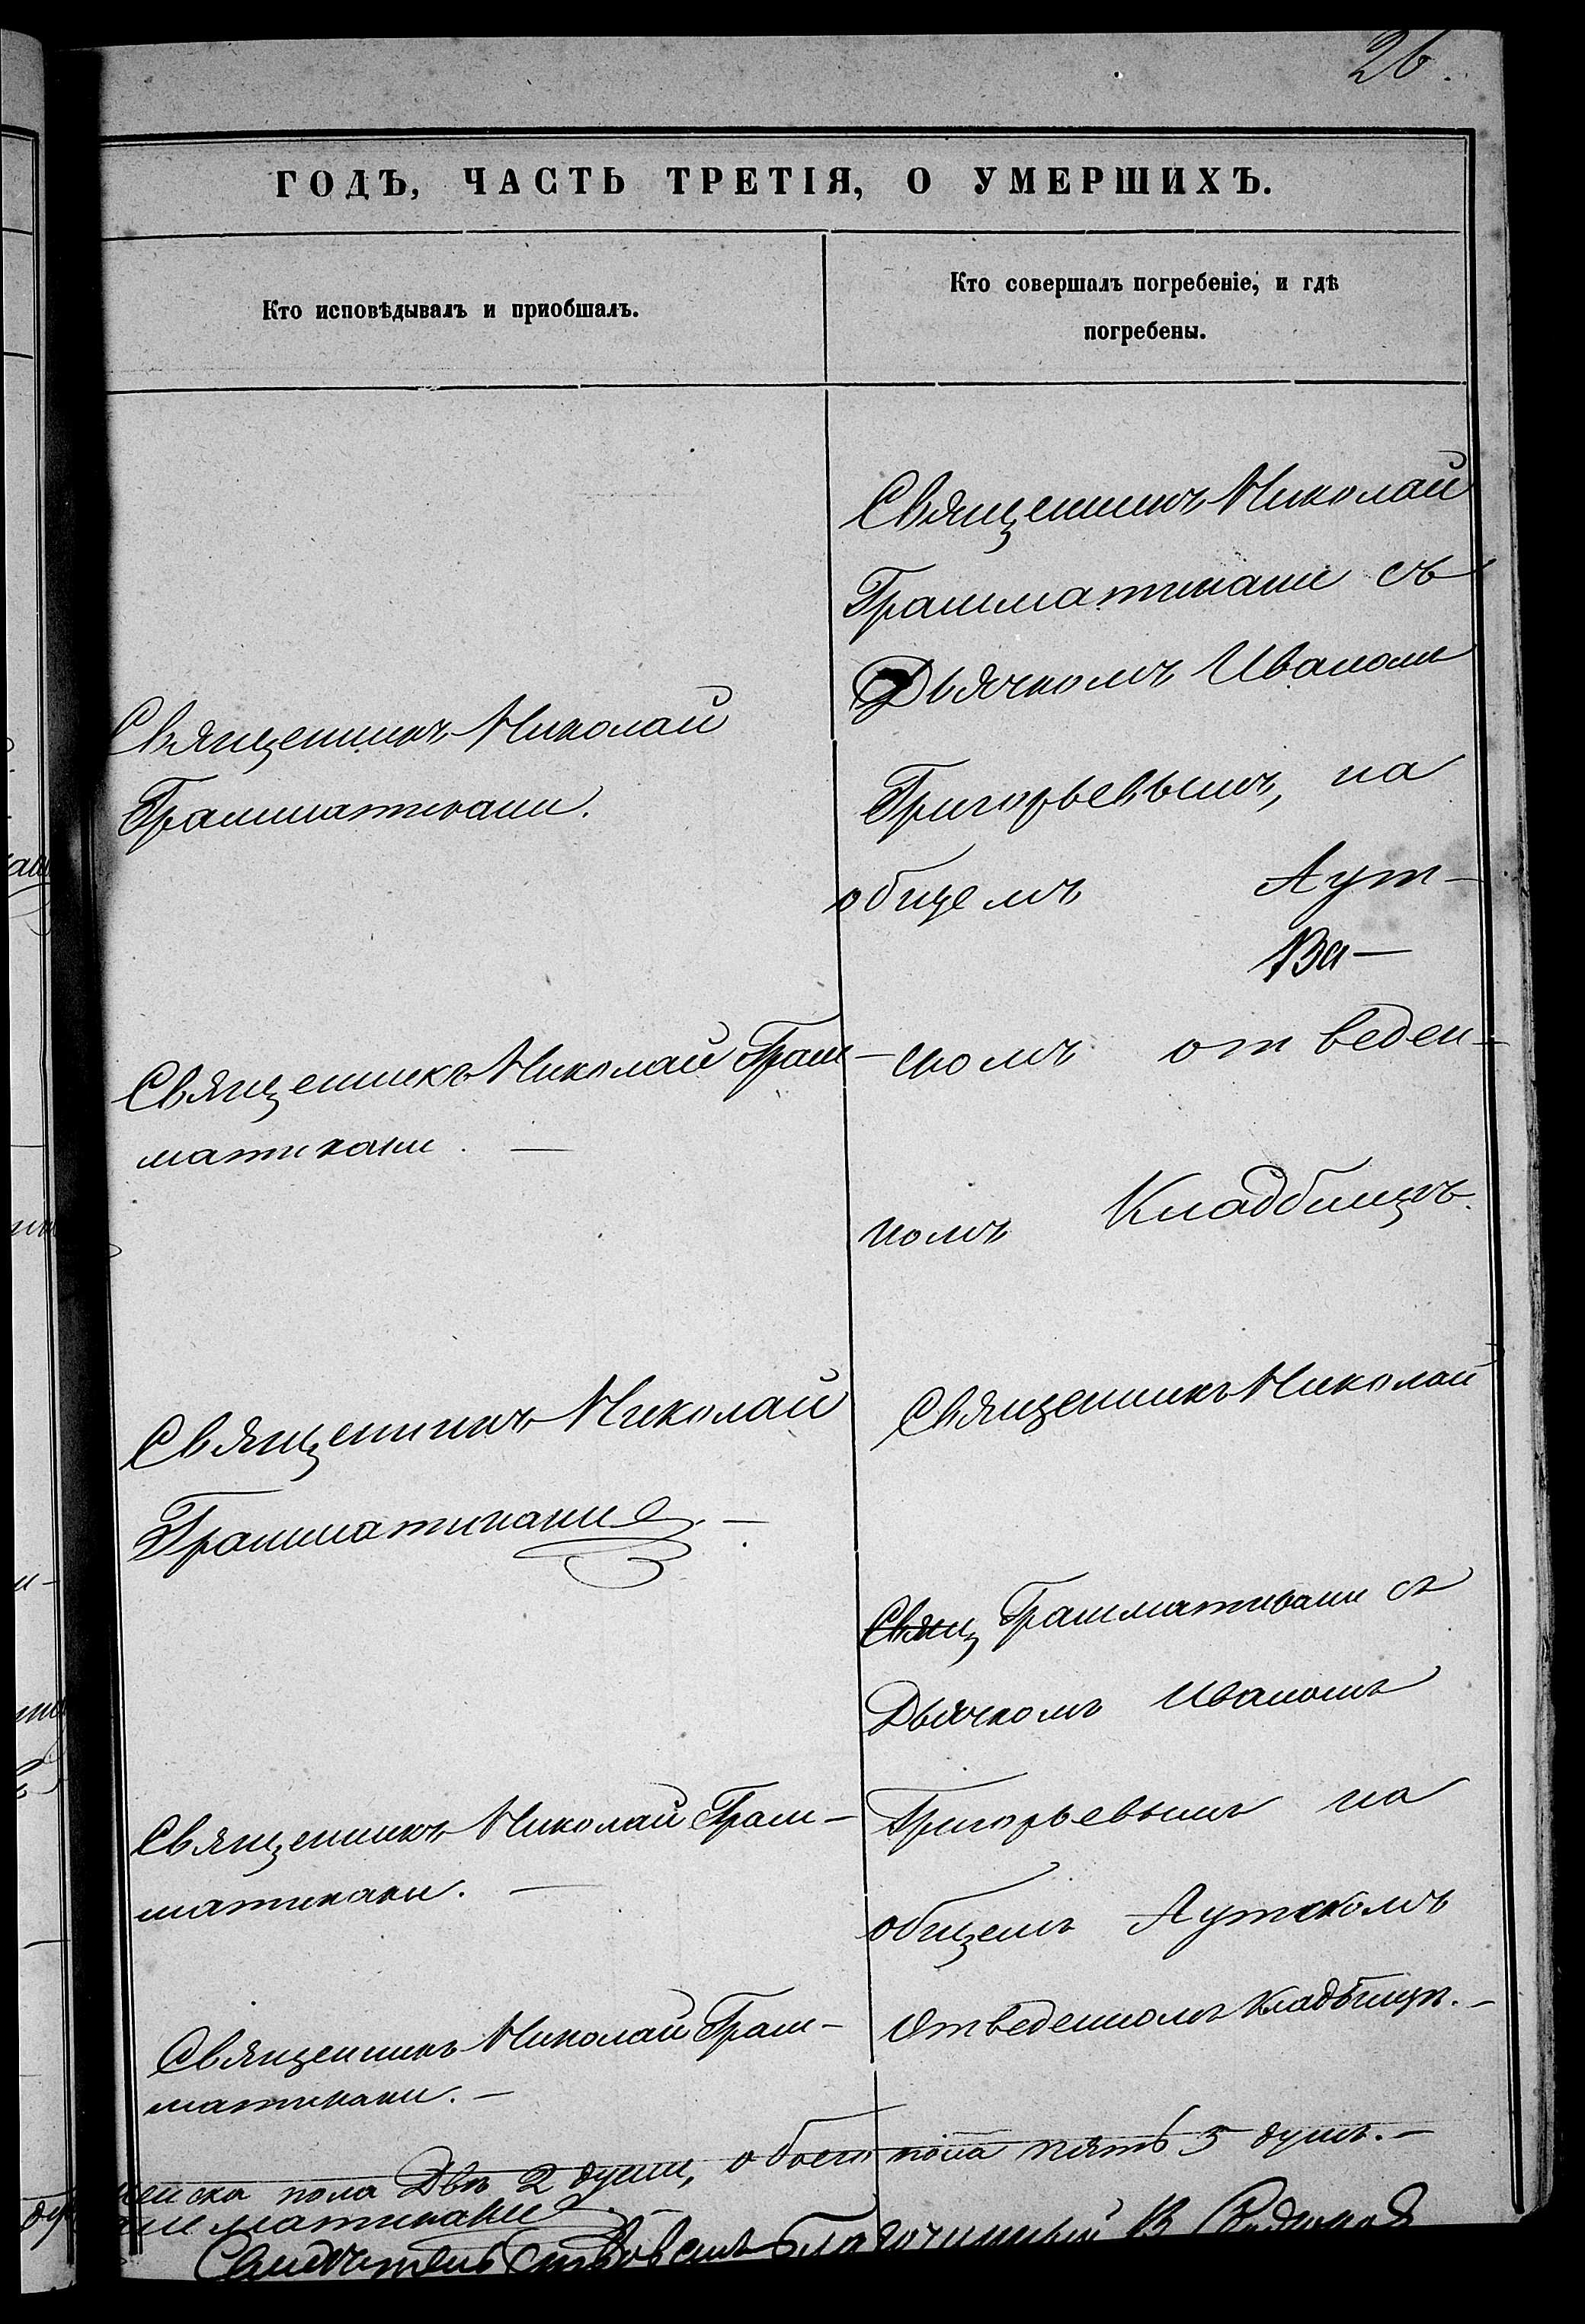 26.
ГОДЪ, ЧАСТЬ ТРЕТІЯ, О УМЕРШИХЪ.
Кто исповѣдывалъ и приобшалъ.
Кто совершалъ погребеніе, и гдѣ
погребены.
Священникъ Николай
Грамматикаки.
Священникъ Николай Грам-
матикаки. —
Священникъ Николай
Грамматикаки. —
Священникъ Николай Грам-
матикаки. —
Священникъ Николай Грам-
матикаки. —
Священникъ Николай
Грамматикаки съ
Дьячкомъ Иваномъ
Григорьевымъ, на
общемъ Аут-
скомъ отведен-
номъ Кладбищѣ.
Священникъ Николай
Свящ Грамматикаки съ
Дьячкомъ Иваномъ
Григорьевымъ на
общемъ Аутскомъ
отведенномъ кладбищѣ. —
женска пола Двѣ 2 души, обоего пола пять 5 душъ. —
матикаки
Благочинный